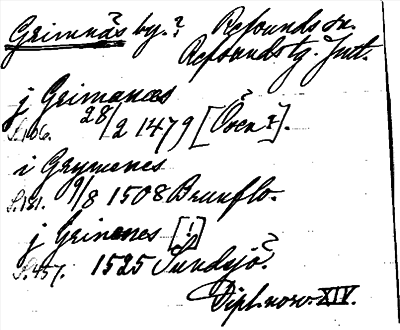 Grimnäs by. ? Refsunds sn.
Refsunds tg. Jmtl.
j Grimanæs
S. 106. 28/2 1479 [Öden ?].
i Grymenes
S. 181. 9/8 1508 Brunflo.
j Grinenes [!]
S. 457. 1525 Sundsjö ?
Dipl. norv. XIV.